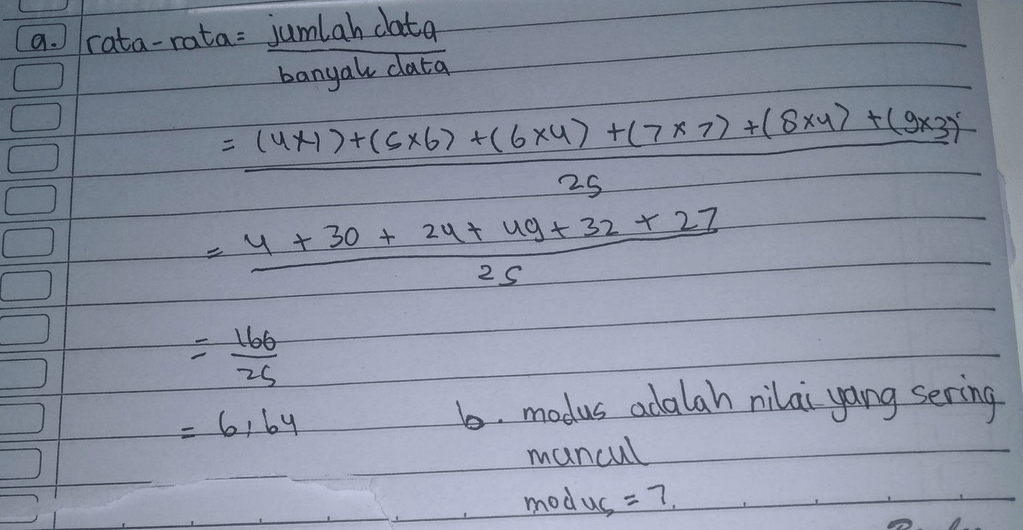 a. rata-rata = jumlah data
banyak data
= (4×1) + (5×6) + (6×4) + (7×7) + (8×4) + (9×3)
25
= 4 + 30 + 24 + 49 + 32 + 27
25
= 166
25
= 6,64
b. modus adalah nilai yang sering
muncul
modus = 7.